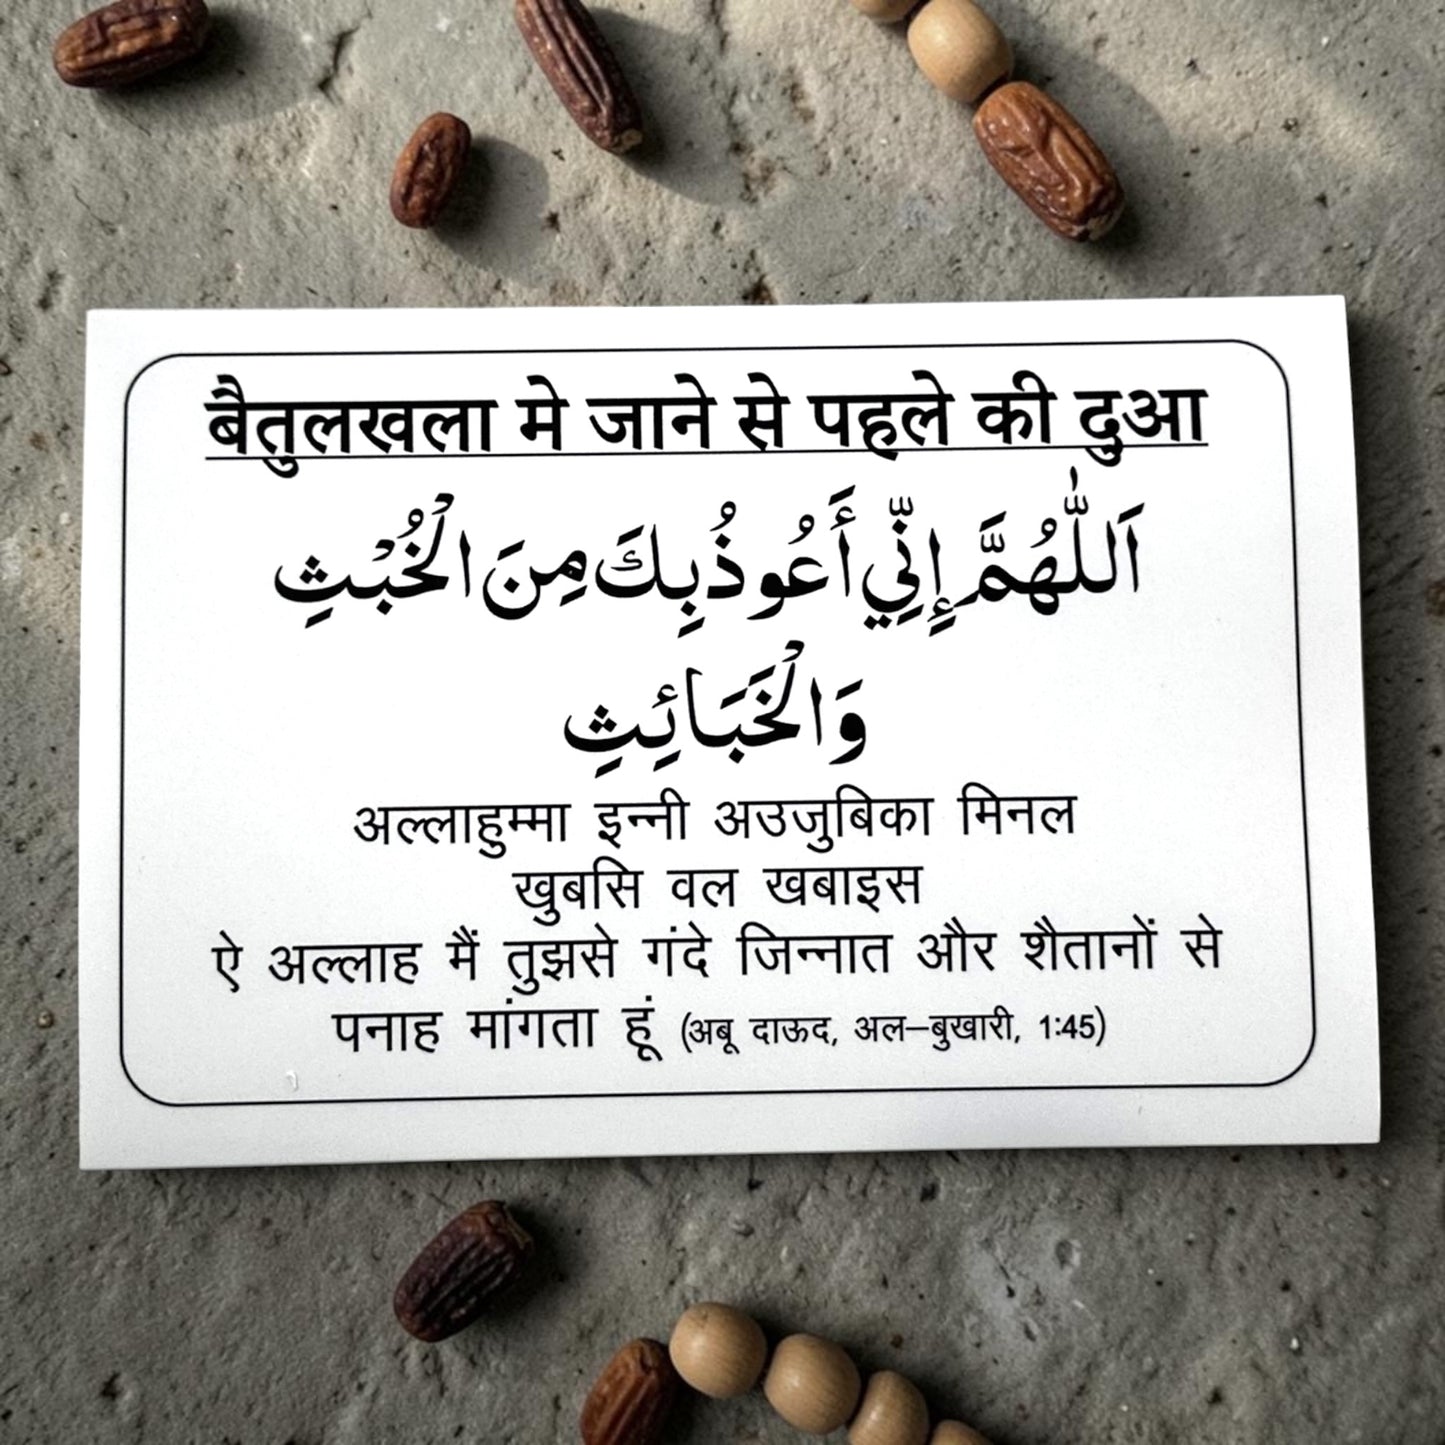 बैतुलखला मे जाने से पहले की दुआ
اَللّٰهُمَّ إِنِّي أَعُوذُ بِكَ مِنَ الْخُبْثِ
وَالْخَبَائِثِ
अल्लाहुम्मा इन्नी अउजुबिका मिनल
खुबसि वल खबाइस
ऐ अल्लाह मैं तुझसे गंदे जिन्नात और शैतानों से
पनाह मांगता हूं (अबू दाऊद, अल–बुखारी, 1:45)